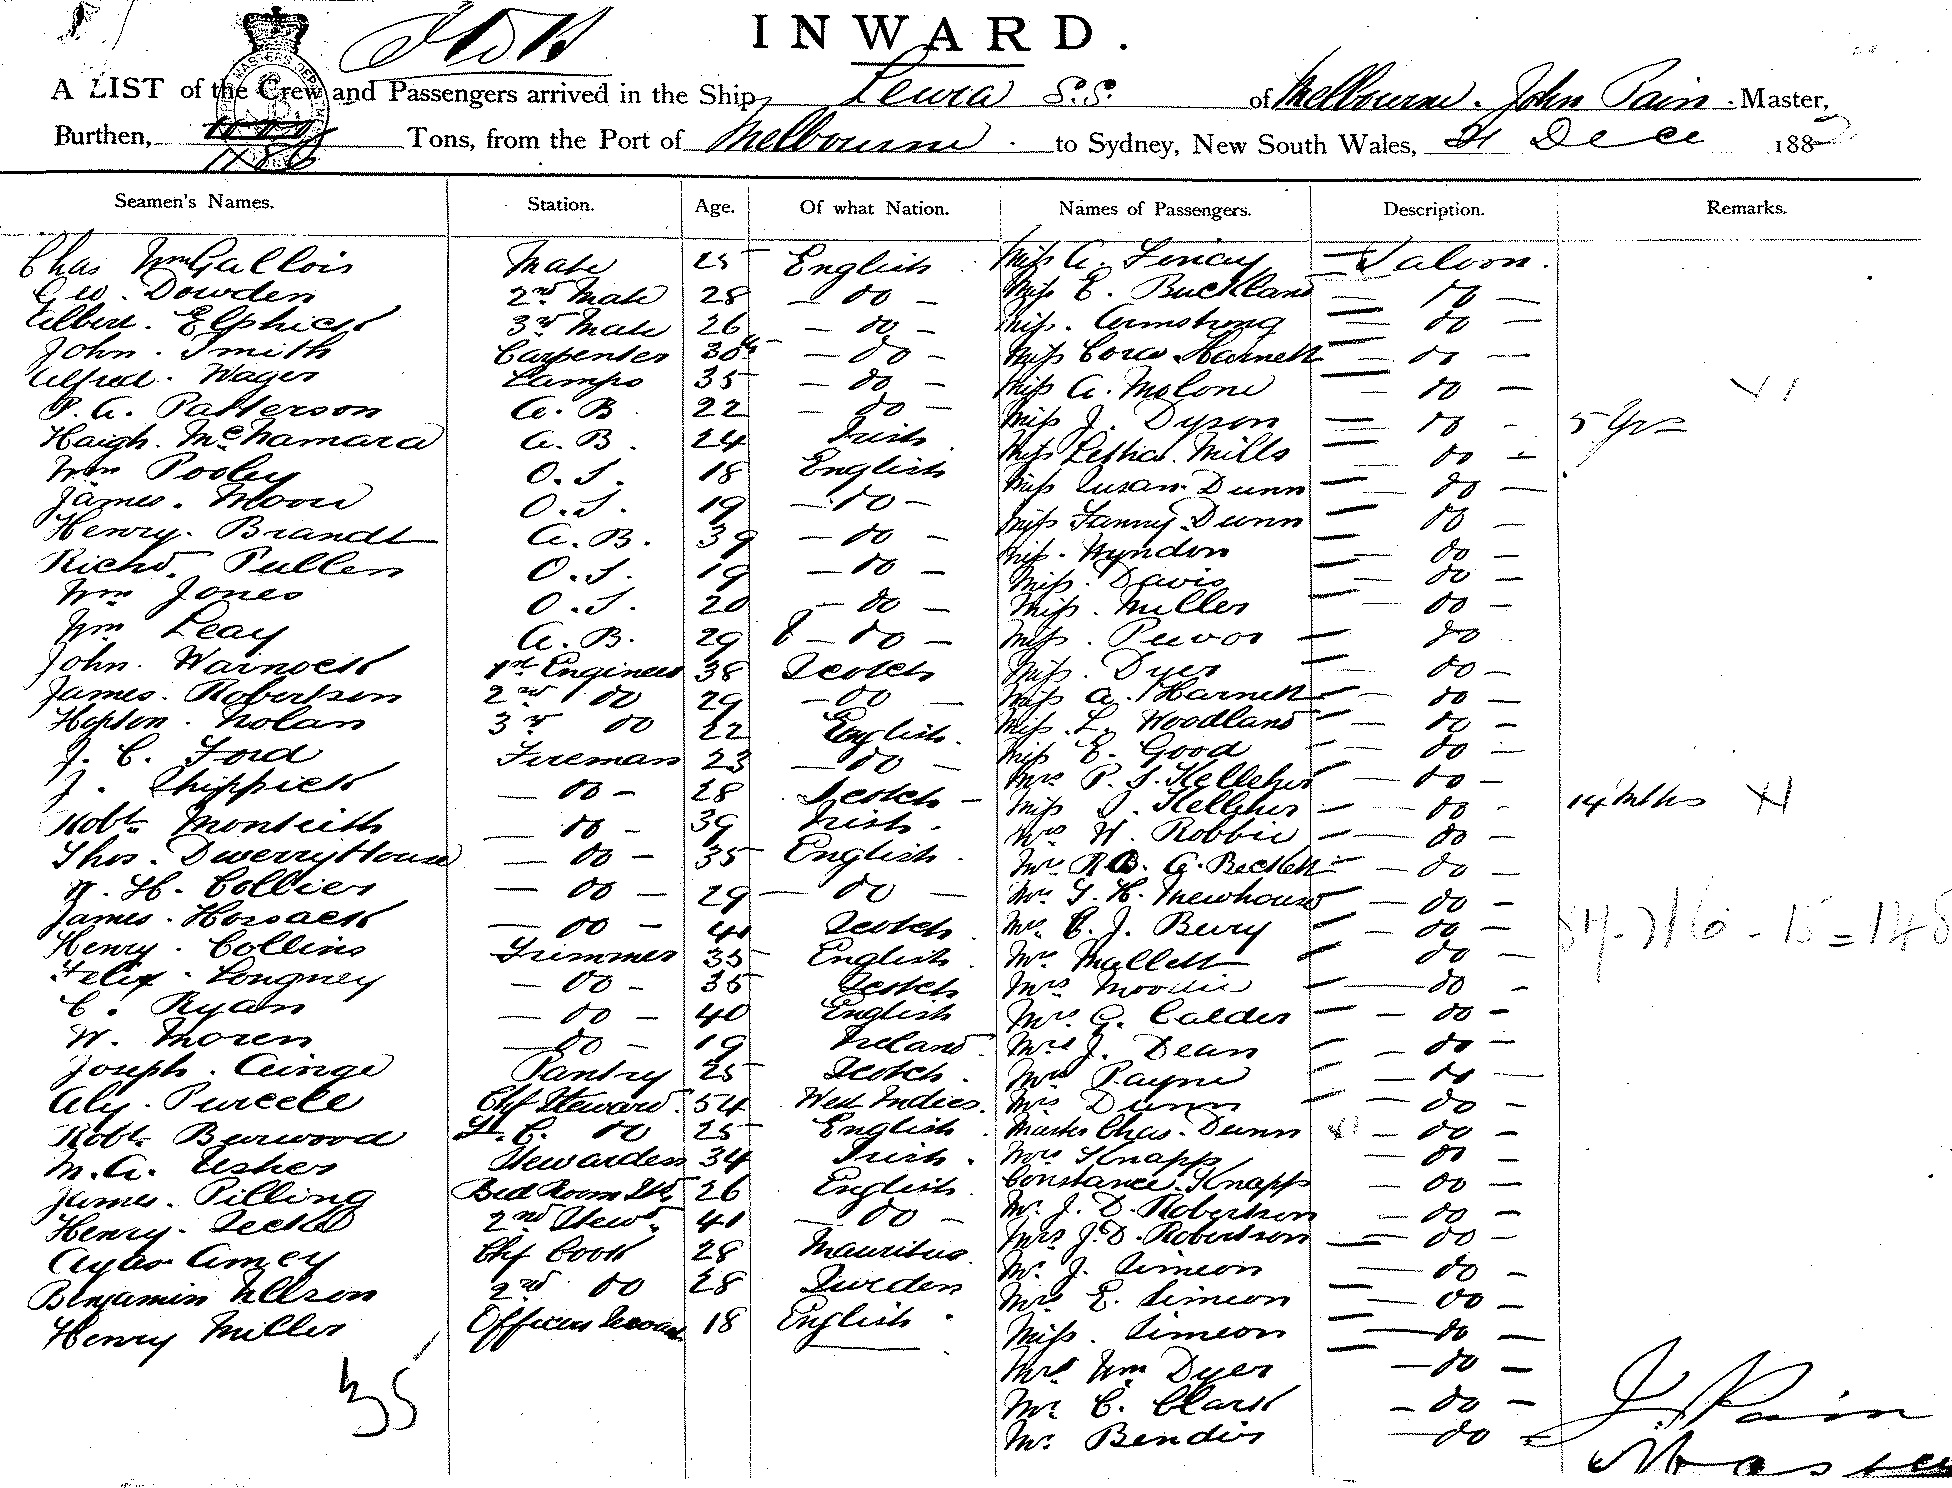 INWARD.
A LIST of the Crew and Passengers arrived in the Ship, Leura S.S. of Melbourne. John Pain. Master,
Burthen, 1186 Tons, from the Port of Melbourne. to Sydney, New South Wales, 21 Dec 188
Seamen's Names. Station. Age. Of what Nation. Names of Passengers. Description. Remarks.
Chas Wm Gallois Mate 25 English Miss A. Finlay — Saloon.
Geo. Dowden 2nd Mate 28 — do — Miss E. Buckland — do —
Albert. Elphick 3rd Mate 26 — do — Miss. Armstrong — do —
John. Smith Carpenter 30 — do — Miss Cora Harnett — do —
Alfred. Wager Lamps 35 — do — Miss A. Malone do —
P. A. Patterson A. B. 22 — do — Miss J. Dyson — do - 5 Yrs
Haigh. McNamara A. B. 24 Irish. Miss Letha. Mills — do -
Wm Pooley O. S. 18 English Miss Susan. Dunn — do —
James. Moore O. S. 19 — do — Miss Fanny. Dunn do —
Henry. Brandt A. B. 39 — do — Miss. Wyndon — do —
Richd. Pullen O. S. 19 — do — Miss. Davis — do —
Wm Jones O. S. 20 — do — Miss. Miller — do —
Wm Leay A. B. 29 — do — Miss. do
John. Warnock 1st Engineer 38 Scotch Miss. Dyer — do —
James. Robertson 2nd do 29 — do — Miss A. Harnett — do —
Hepton. Nolan 3rd do 22 English. Miss. L. Woodland — do —
J. C. Ford Fireman 23 — do — Miss E. Good — do —
J. Shippick — do — 28 Scotch — Mrs P. S. Kelleher — do —
Robt. Monteith — do — 39 Irish. Miss J. Kelleher — do — 14 Mths
Thos. Dwerryhouse — do — 35 English. Mr. W. Robbie — do —
W. H. Collier — do — 29 — do — Mr. R B. A. Beckett — do —
James. Hossack — do — 40 Scotch. Mr. G. H. Newhouse — do —
Henry. Collins Trimmer 35 English. Mr. C. J. Berry — do —
Felix. Longney — do — 35 Scotch Mr. Mallett do —
C. Ryan — do — 40 English Mrs Moodie — do —
W. Moren — do — 19 Ireland. Mr. G. Calder — do —
Joseph. Ainge Pantry 25 Scotch. Mrs J. Dean — do —
Aly. Purcele Chf Steward. 54 West Indies. Mr. Payne — do —
Robt. Burwood do 25 English. Mrs Dunn — do —
M. A. Usher Stewardess 34 Irish. Master Chas. Dunn — do —
James. Pilling Bed Room Std. 26 English. Mrs Knapp do —
Henry. 2nd Stewd. 40 — do — Constance. Knapp — do —
Amey Chf Cook 28 Mauritius. Mr. J. D. Robertson — do —
Benjamin Nelson 2nd do 28 Sweden Mrs J. D. Robertson — do —
Henry Miller Officers Servant 18 English. Mr. J. Simeon — do —
Mrs E. Simeon — do —
Miss. Simeon — do —
Mr. Wm Dyer — do —
Mr. C. Clark — do —
Mr. Bender — do —
35
J. Pain
Master